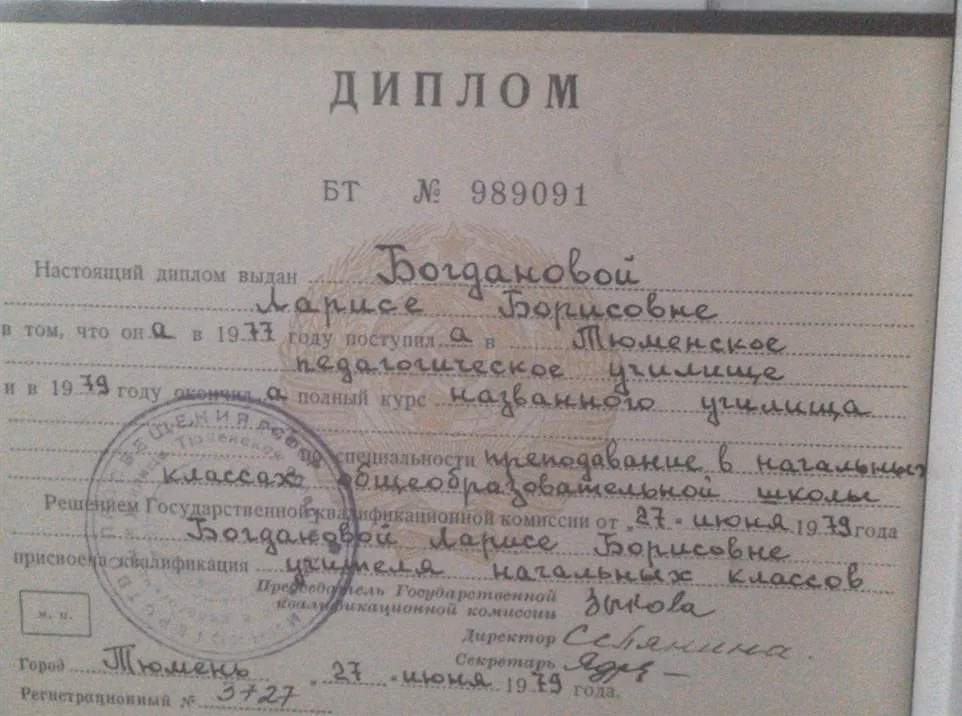 ДИПЛОМ
БТ № 989091
Настоящий диплом выдан Богдановой
Ларисе Борисовне
в том, что она в 1977 году поступила в Тюменское
педагогическое училище
и в 1979 году окончила полный курс названного училища
по специальности преподавание в начальных
классах общеобразовательной школы
Решением Государственной квалификационной комиссии от „27 " июня 1979 года
Богдановой Ларисе Борисовне
присвоена квалификация учителя начальных классов
Председатель Государственной
квалификационной комиссии Зыкова
м. п.
Директор Селянина
Секретарь
Город Тюмень „ 27 " июня 1979 года.
Регистрационный № 3727